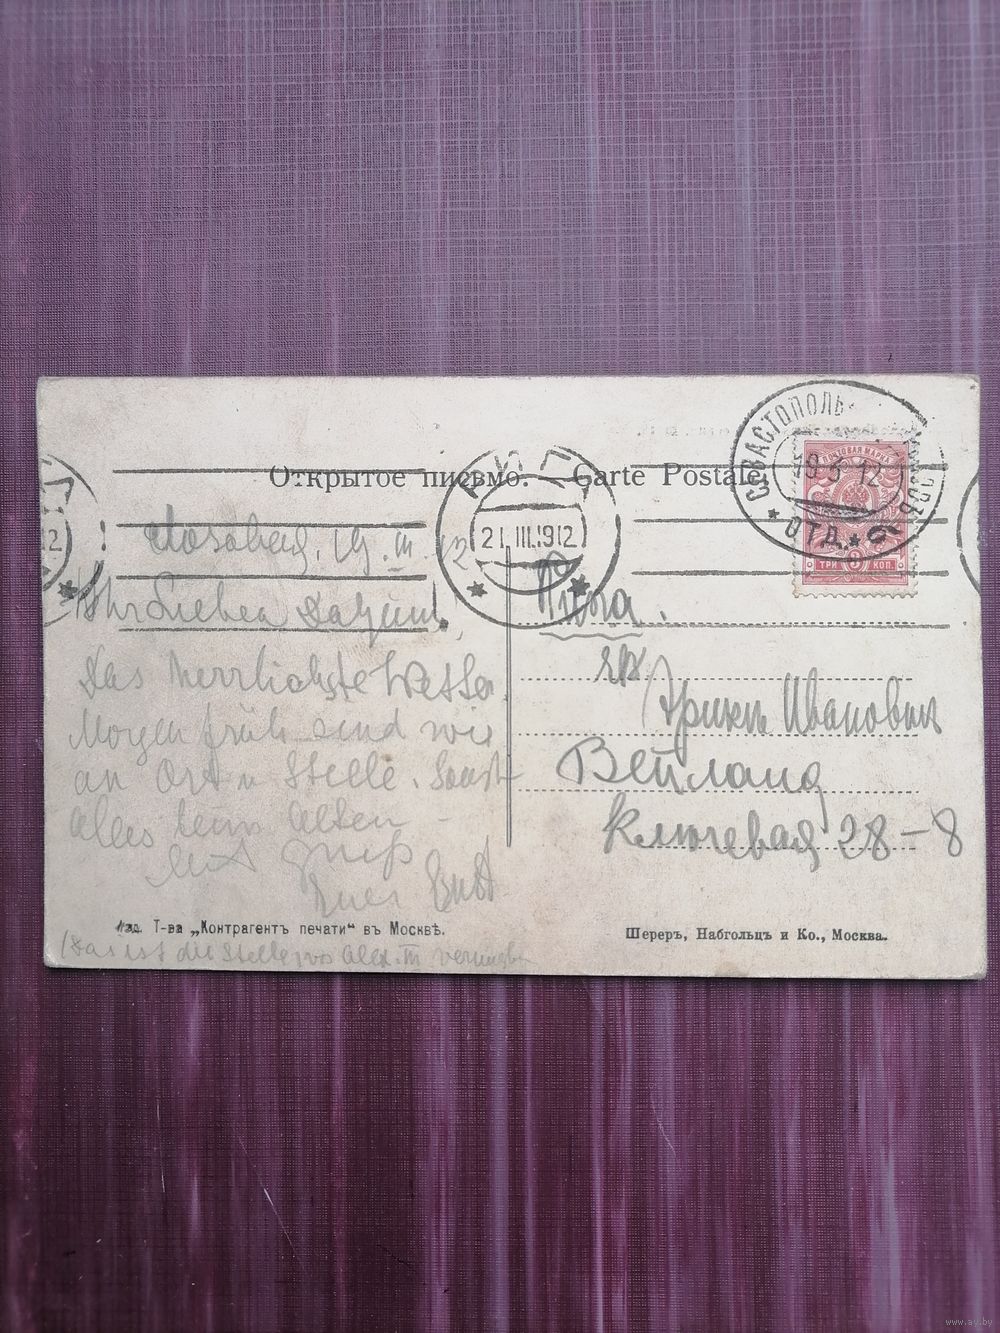 Открытое письмо. — Carte Postale.
СЕВАСТОПОЛЬ
19 3 12
ОТД. 6
ПОЧТОВАЯ МАРКА
3
ТРИ КОП.
21.III.1912
19. III. 12
Ihr Lieben
Das herrlichste Wetter.
Morgen früh sind wir
an Ort u Stelle. Sonst
alles beim Alten –
Mit Gruß
Рига.
Эрихъ Ивановичъ
Вейланд
Ключевая 28–8
Изд. Т-ва „Контрагентъ печати“ въ Москвѣ.
Шереръ, Набгольцъ и Ко., Москва.
(Das ist die Stelle wo Alex. III
www.ay.by